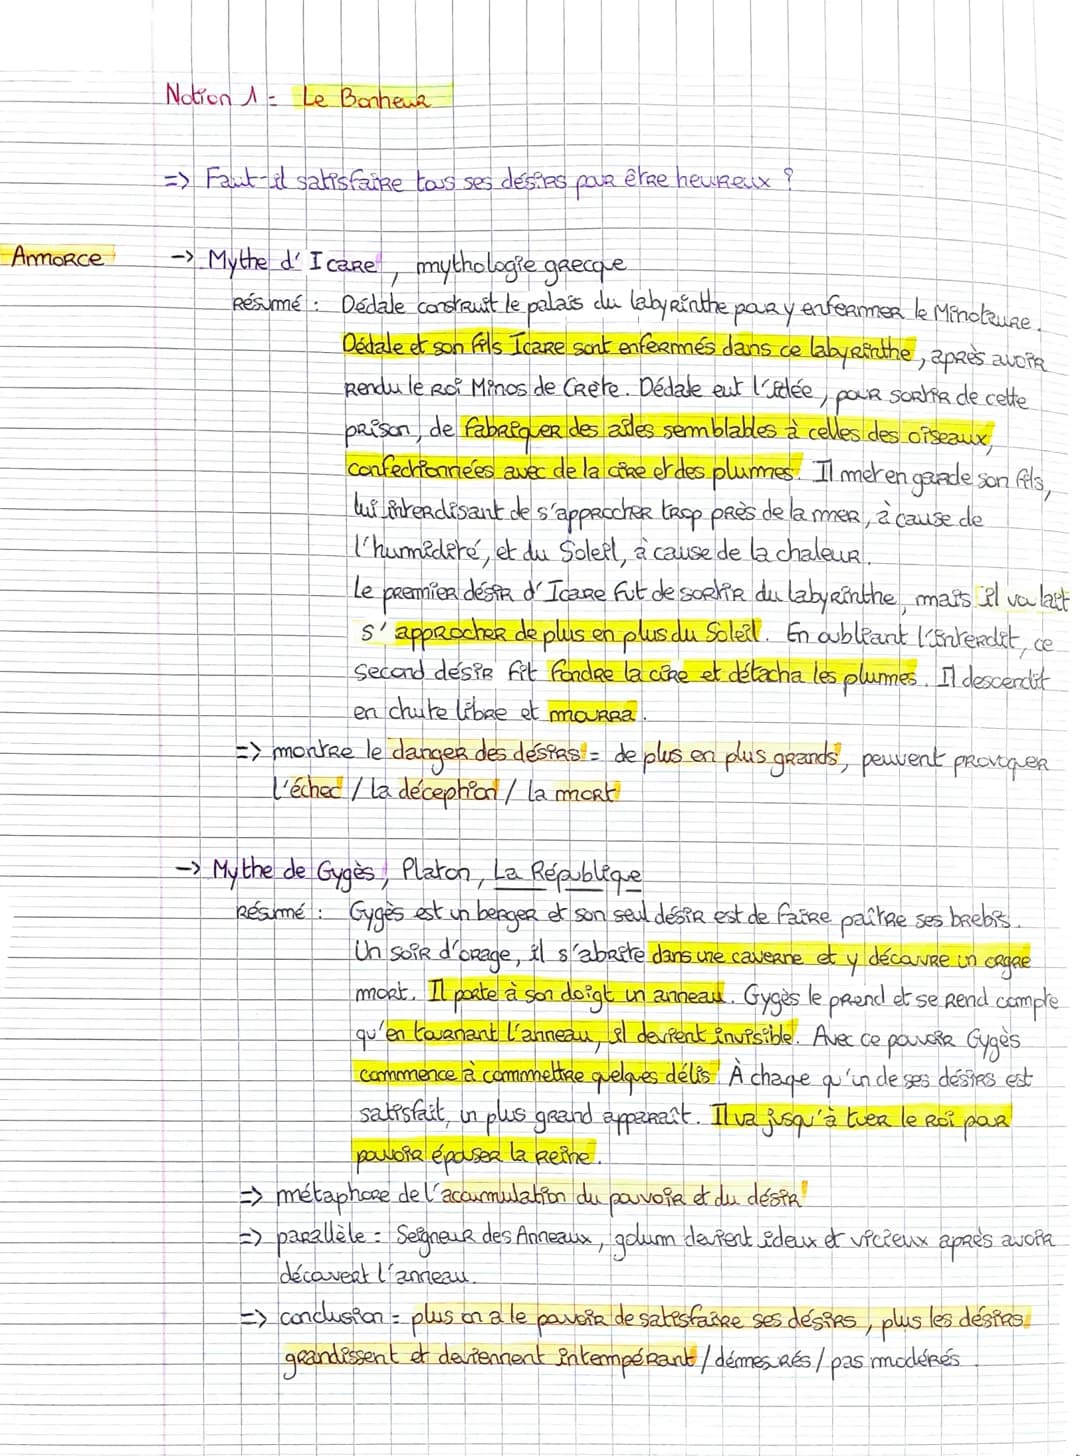 Notion 1 = Le Bonheur
=> Faut-il satisfaire tous ses désirs pour être heureux ?
Amorce
-> Mythe d'Icare, mythologie grecque
résumé : Dédale construit le palais du labyrinthe pour y enfermer le Minotaure.
Dédale et son fils Icare sont enfermés dans ce labyrinthe, après avoir
rendu le roi Minos de Crète. Dédale eut l'idée, pour sortir de cette
prison, de fabriquer des ailes semblables à celles des oiseaux,
confectionnées avec de la cire et des plumes. Il met en garde son fils,
lui interdisant de s'approcher trop près de la mer, à cause de
l'humidité, et du Soleil, à cause de la chaleur.
Le premier désir d'Icare fut de sortir du labyrinthe, mais il voulait
s'approcher de plus en plus du Soleil. En oubliant l'interdit, ce
second désir fit fondre la cire et détacha les plumes. Il descendit
en chute libre et mourra.
=> montre le danger des désirs = de plus en plus grands, peuvent provoquer
l'échec / la déception / la mort
-> Mythe de Gygès, Platon, La République
résumé : Gygès est un berger et son seul désir est de faire paître ses brebis.
Un soir d'orage, il s'abrite dans une caverne et y découvre un ogre
mort. Il porte à son doigt un anneau. Gygès le prend et se rend compte
qu'en tournant l'anneau, il devient invisible. Avec ce pouvoir Gygès
commence à commettre quelques délis. À chaque qu'un de ses désirs est
satisfait, un plus grand apparaît. Il va jusqu'à tuer le roi pour
pouvoir épouser la reine.
=> métaphore de l'accumulation du pouvoir et du désir
=> parallèle = Seigneur des Anneaux, golum devient ideux et vicieux après avoir
découvert l'anneau.
=> conclusion = plus on a le pouvoir de satisfaire ses désirs, plus les désirs
grandissent et deviennent intempérant / démesurés / pas modérés